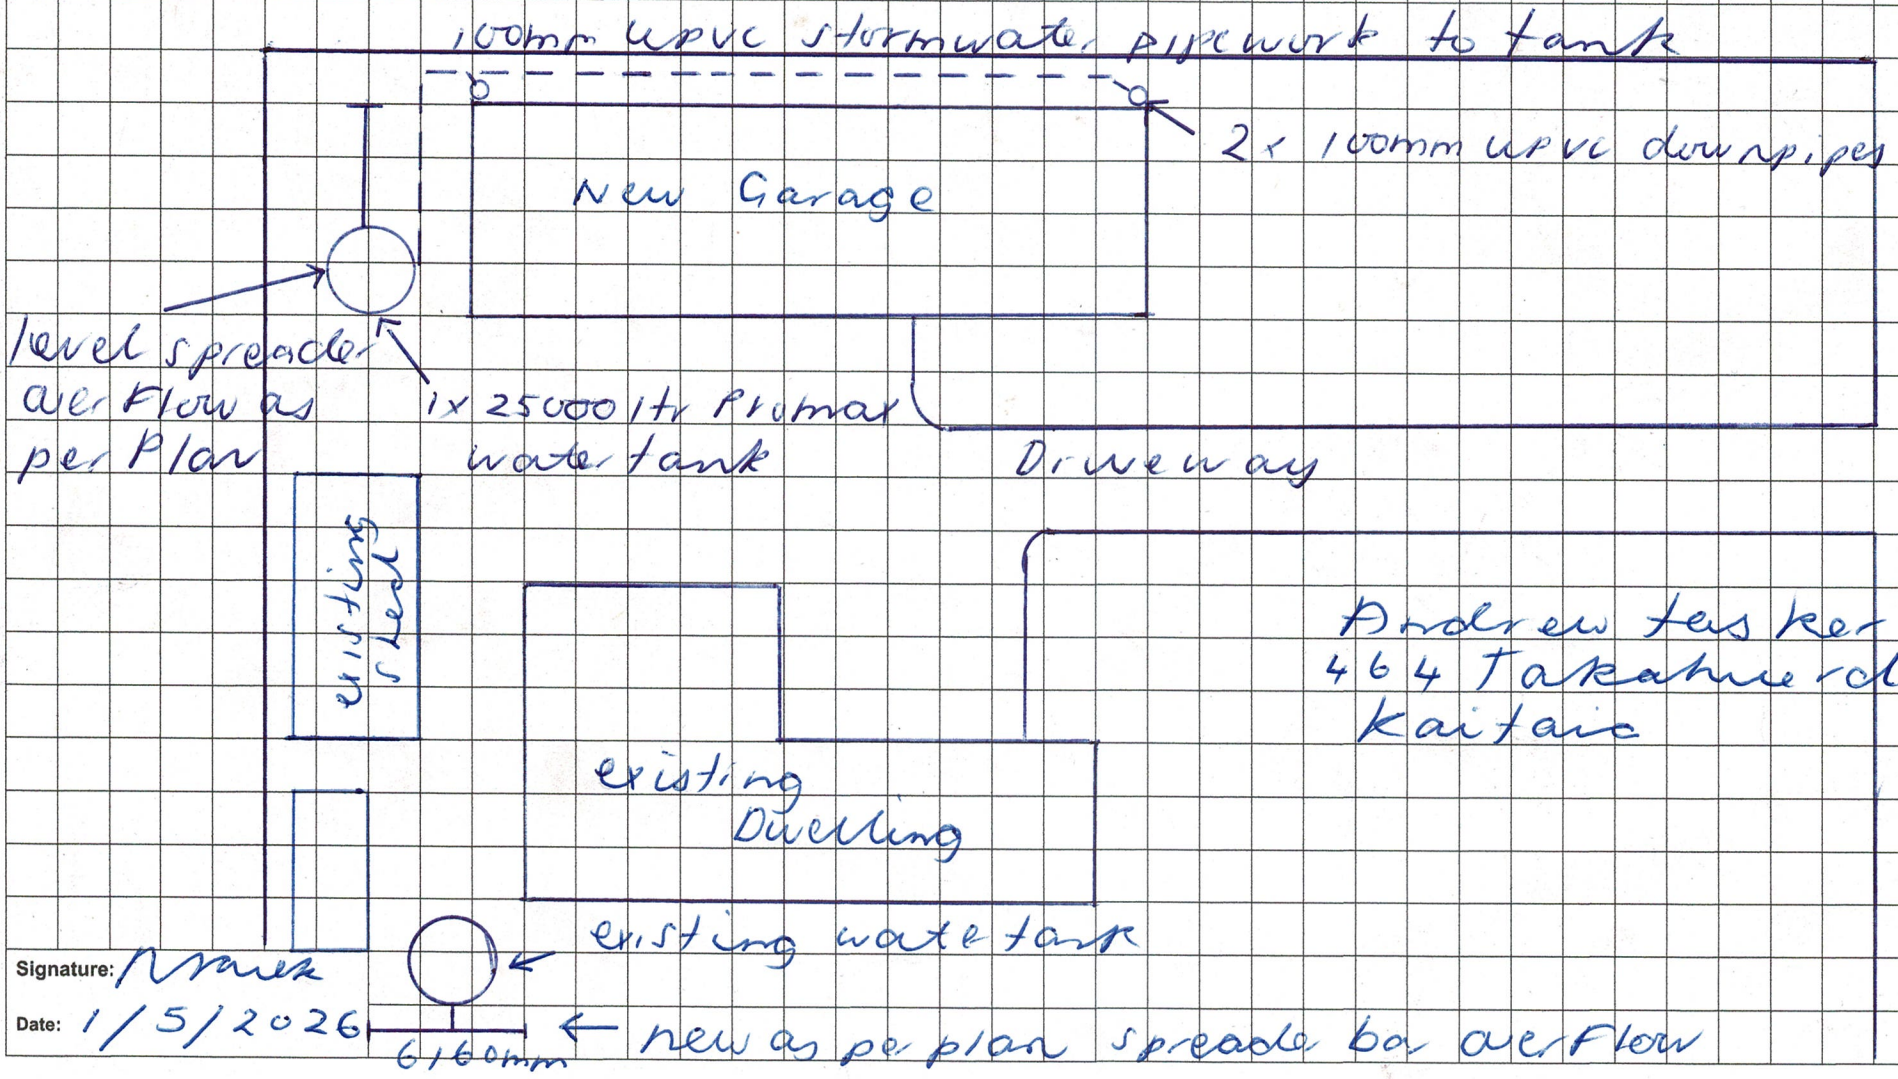 100mm upvc stormwater pipework to tank
2x 100mm upvc downpipes
New Garage
level spreader
overflow as
per Plan
1x 25000 ltr Promax
water tank
Driveway
existing
shed
Andrew tasker
464 Takahue rd
Kaitaia
existing
Dwelling
existing wate tank
Signature:
Date: 1/5/2026
6160mm
new as per plan spreader bar overflow